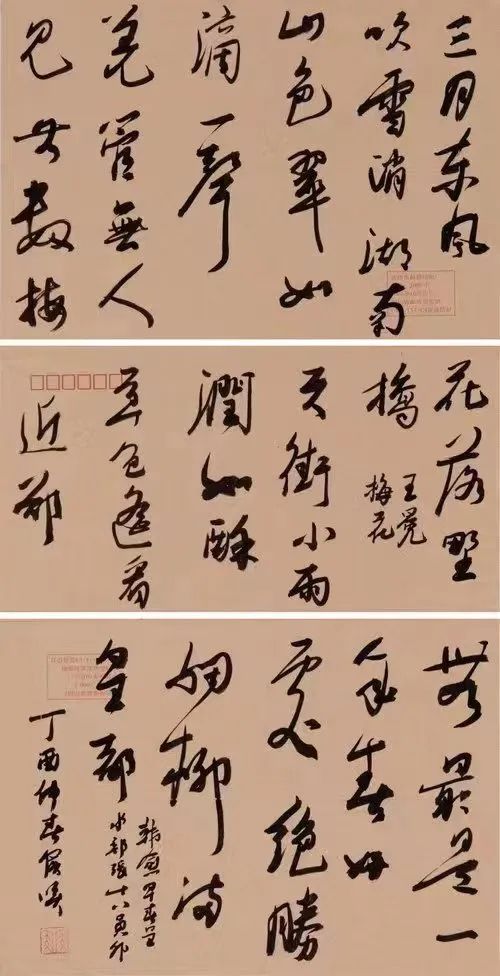 三月东风
吹雪消湖南
山色翠如
滴一聲
羌管無人
见无數梅
花落野
橋
王冕
梅花
天街小雨
潤如酥
草色遥看
近却
無最是一
年春好
處絕勝
烟柳满
皇都
韓愈早春呈
水部張十八員外
丁酉仲春